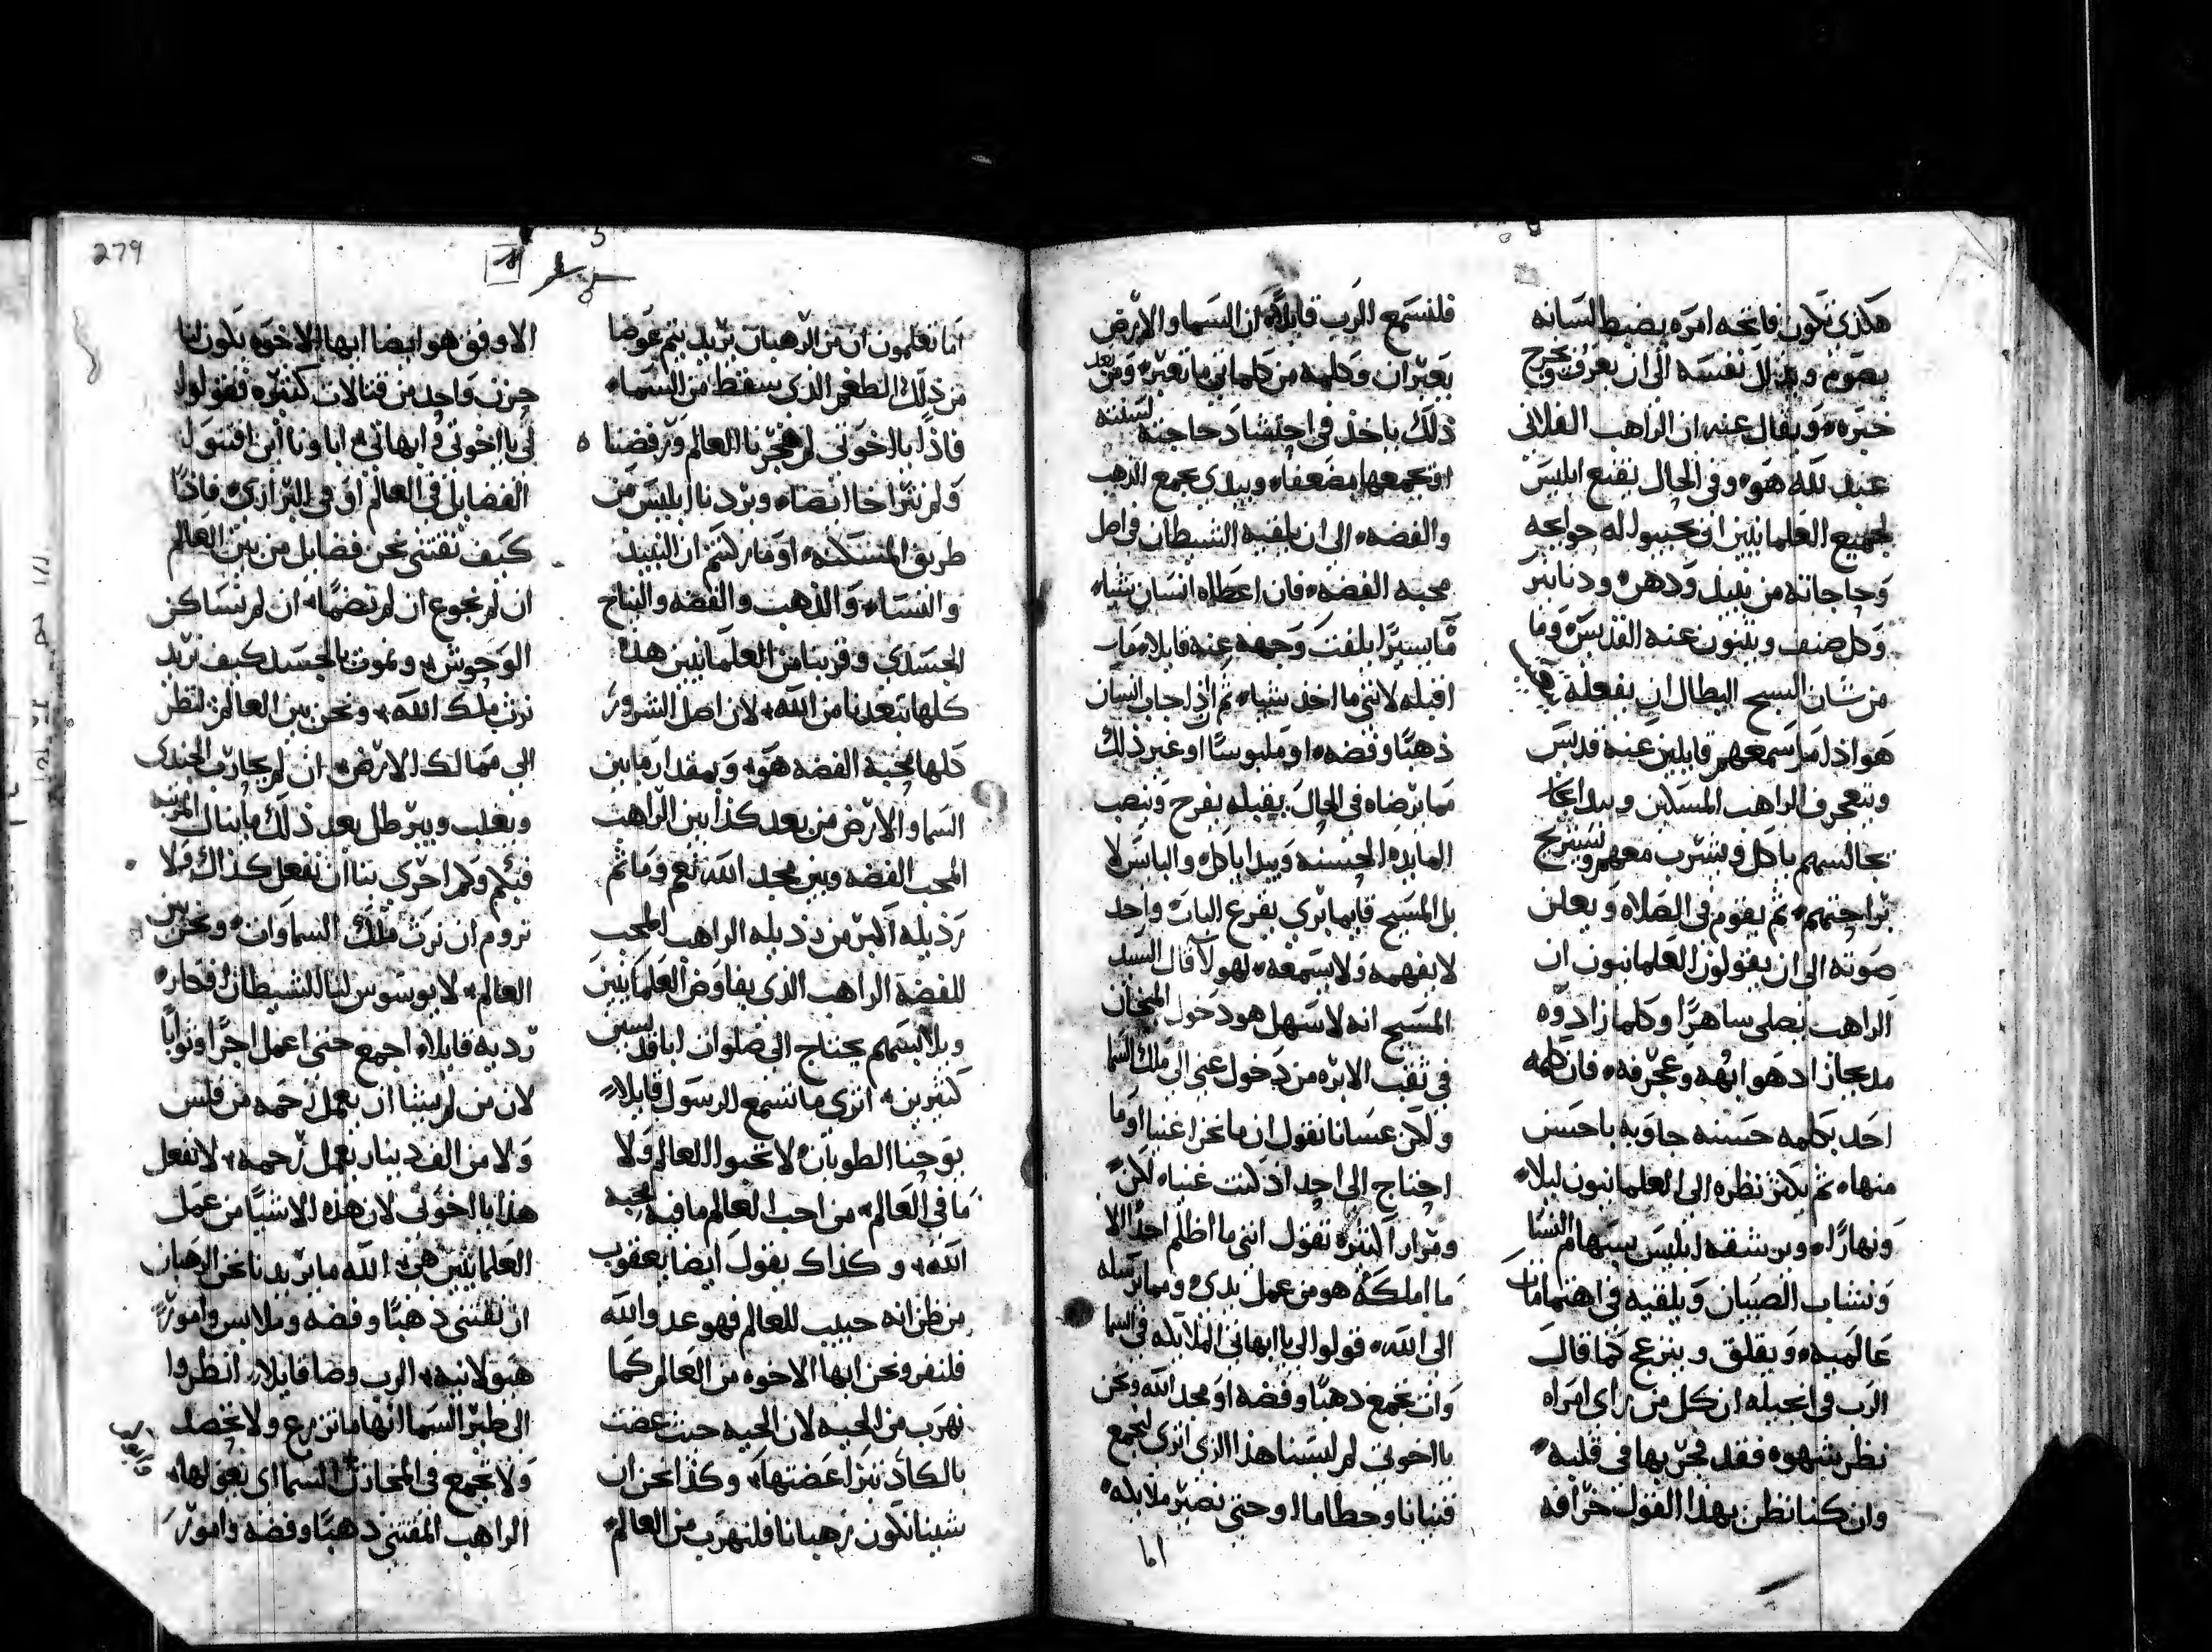 هكذى تكون فاتحه امره يضبط لسانه
يصوم ويذلل نفسه الى ان يعرف ويخرج
خبره، ويقال عنه ان الراهب الفلانى
عبد لله هو، وفى الحال يقنع ابليس
لجميع العلمانيين ان يجيبوا له حوايجه
وحاجاته من نبيذ ودهن، ودنانير
وكل صنف ويثنون عنه القديس، وما
من شان السبح البطال ان يفعله
هو اذا ما سمعهم قايلين عنه قديس
ويتعجرف الراهب المسكين ويبدا
يجالسهم ياكل ويشرب معهم ويستريح
براحتهم، ثم يقوم فى الصلاه ويعلن
صوته الى ان يقولون العلمانيون ان
الراهب يصلى ساهرًا وكلما زادوه
مديحًا زاد هو ابهه وعجرفه، فان كلمه
احد بكلمه حسنه جاوبه باحسن
منها، ثم يكثر نظره الى العلمانيون ليلا،
ونهارًا، ويرشقه ابليس بسهام النسا
وشباب الصبيان ويلقيه فى اهتمامات
عالميه، ويقلق وينزعج كما قال
الرب فى انجيله ان كل من راى امراه
نظر شهوه فقد فجر بها فى قلبه،
وان كنا نظن بهذا القول خرافه
فلنسمع الرب قايلاً، ان السما والارض
يعبران وكلمه من كلماتى ما تعبر، ومن بعد
ذلك ياخذ فى احتشاد حاجته لسنته
او يجمعها مضعفا، ويبدى يجمع الذهب
والفضه، الى ان يلقيه الشيطان فى اصل
محبه الفضه، فان اعطاه انسان شيا،
ما يسيرًا يلفت وجهه عنه قايلا، ما
اقبله لاننى ما اخذ شيا، ثم اذا جاب انسان
ذهبًا وفضه، او ملبوسًا او غير ذلك
مما يرضاه فى الحال يقبله بفرح وينصب
المايده الحسنه ويبدا ياكل، والبايس لا
بل المسيح قايما برى يقرع الباب، واحد
لا يفهمه ولا يسمعه، لهولا قال السيد
المسيح انه لاسهل هو دخول
فى ثقب الابره من دخول غنى الى ملك السما
ولكن عسانا نقول ان ما نحن اغنيا او ما
احتاج الى احد اذ كنت غنيا، لكن
ومرار كثيره نقول اننى ما اظلم احدًا الا
ما املكه هو من عمل يدى، ومما يرسله
الى الله، قولوا لى يا ابهاتى الملايكه فى السما
وان تجمع ذهبًا وفضه او مجد الله ونحن
يا اخوتى لم لبسنا هذا الزى اترى لنجمع
قنيانا وحطاما او حتى نصير ملايكه،
اما
اما تعلمون ان من الرهبان يريد يتم عوضا
من ذلك الطغم الذى سقط من السماء
فاذًا يا اخوتى لم هجرنا العالم ورفضنا
ولم نترا خا ايضًا، ويردنا ابليس من
طريق المسكنه، او ما علمتم ان النبيذ
والنساء والذهب والفضه والنياح
الجسدى وقربنا من العلمانيين هذه
كلها تبعدنا من الله، لان اصل الشرور
كلها محبه الفضه هو، وبمقدار ما بين
السما والارض من بعد كذا بين الراهب
المحب الفضه وبين مجد الله نعم وما ثم
رذيله اكثر من رذيله الراهب المحب
للفضه الراهب الذى يفاوض العلمانيين
ويلابسهم يحتاج الى صلوات ابا قديسين
كثيرين، اترى ما تسمع الرسول قايلاً
يوحنا الطوبان، لا تحبوا العالم ولا
ما فى العالم، من احب العالم ما فيه محبه
الله، وكذاك يقول ايضا يعقوب
من ظن انه حبيب للعالم فهو عدو الله
فلنفر ونحن ايها الاخوه من العالم كما
نهرب من الحيه لان الحيه حيث عضت
بالكاد تبرا عضتها، وكذا نحن ان
شينا نكون رهبانا فلنهرب من العالم،
الاوفق هو ايضا ايها الاخوه يكون لنا
حرب واحد من قتالات كثيره فقولوا
لى يا اخوتى وابهاتى، اباونا اين اقتنوا
الفضايل فى العالم او فى البرارى، فاذًا
كيف نقتنى نحن فضايل من بين العالم
ان لم نجوع ان لم نضما، ان لم نساكن
الوحوش، ونموت بالجسد كيف نريد
نرث ملك الله، ونحن بين العالم، لننظر
الى ممالك الارض، ان لم يحارب الجندى
ويغلب ويبرطل بعد ذلك ما ينال المرتبه
فبكم وكم احرى بنا ان نفعل كذاك، ولا
نروم ان نرث ملك السماوات، ونحن بين
العالم، لا يوسوس لنا الشيطان افكار،
رديه قايلا، اجمع حتى اعمل اجرًا وثوابًا
لان من لم يشا ان يعمل رحمه من فلس
ولا من الف دينار يعمل رحمه، لا نفعل
هذا يا اخوتى لان هذه الاشيا من عمل
العلمانيين هى، الله ما يريدنا نحن الرهبان
ان نقتنى ذهبًا وفضه وملابس وامورًا
هيولانيه، الرب وصا قايلا، انظروا
الى طير السما انها ما تزرع ولا تحصد
ولا تجمع فى المخازن السما اى نعولها،
الراهب المقتنى ذهبًا وفضه وامورًا
279